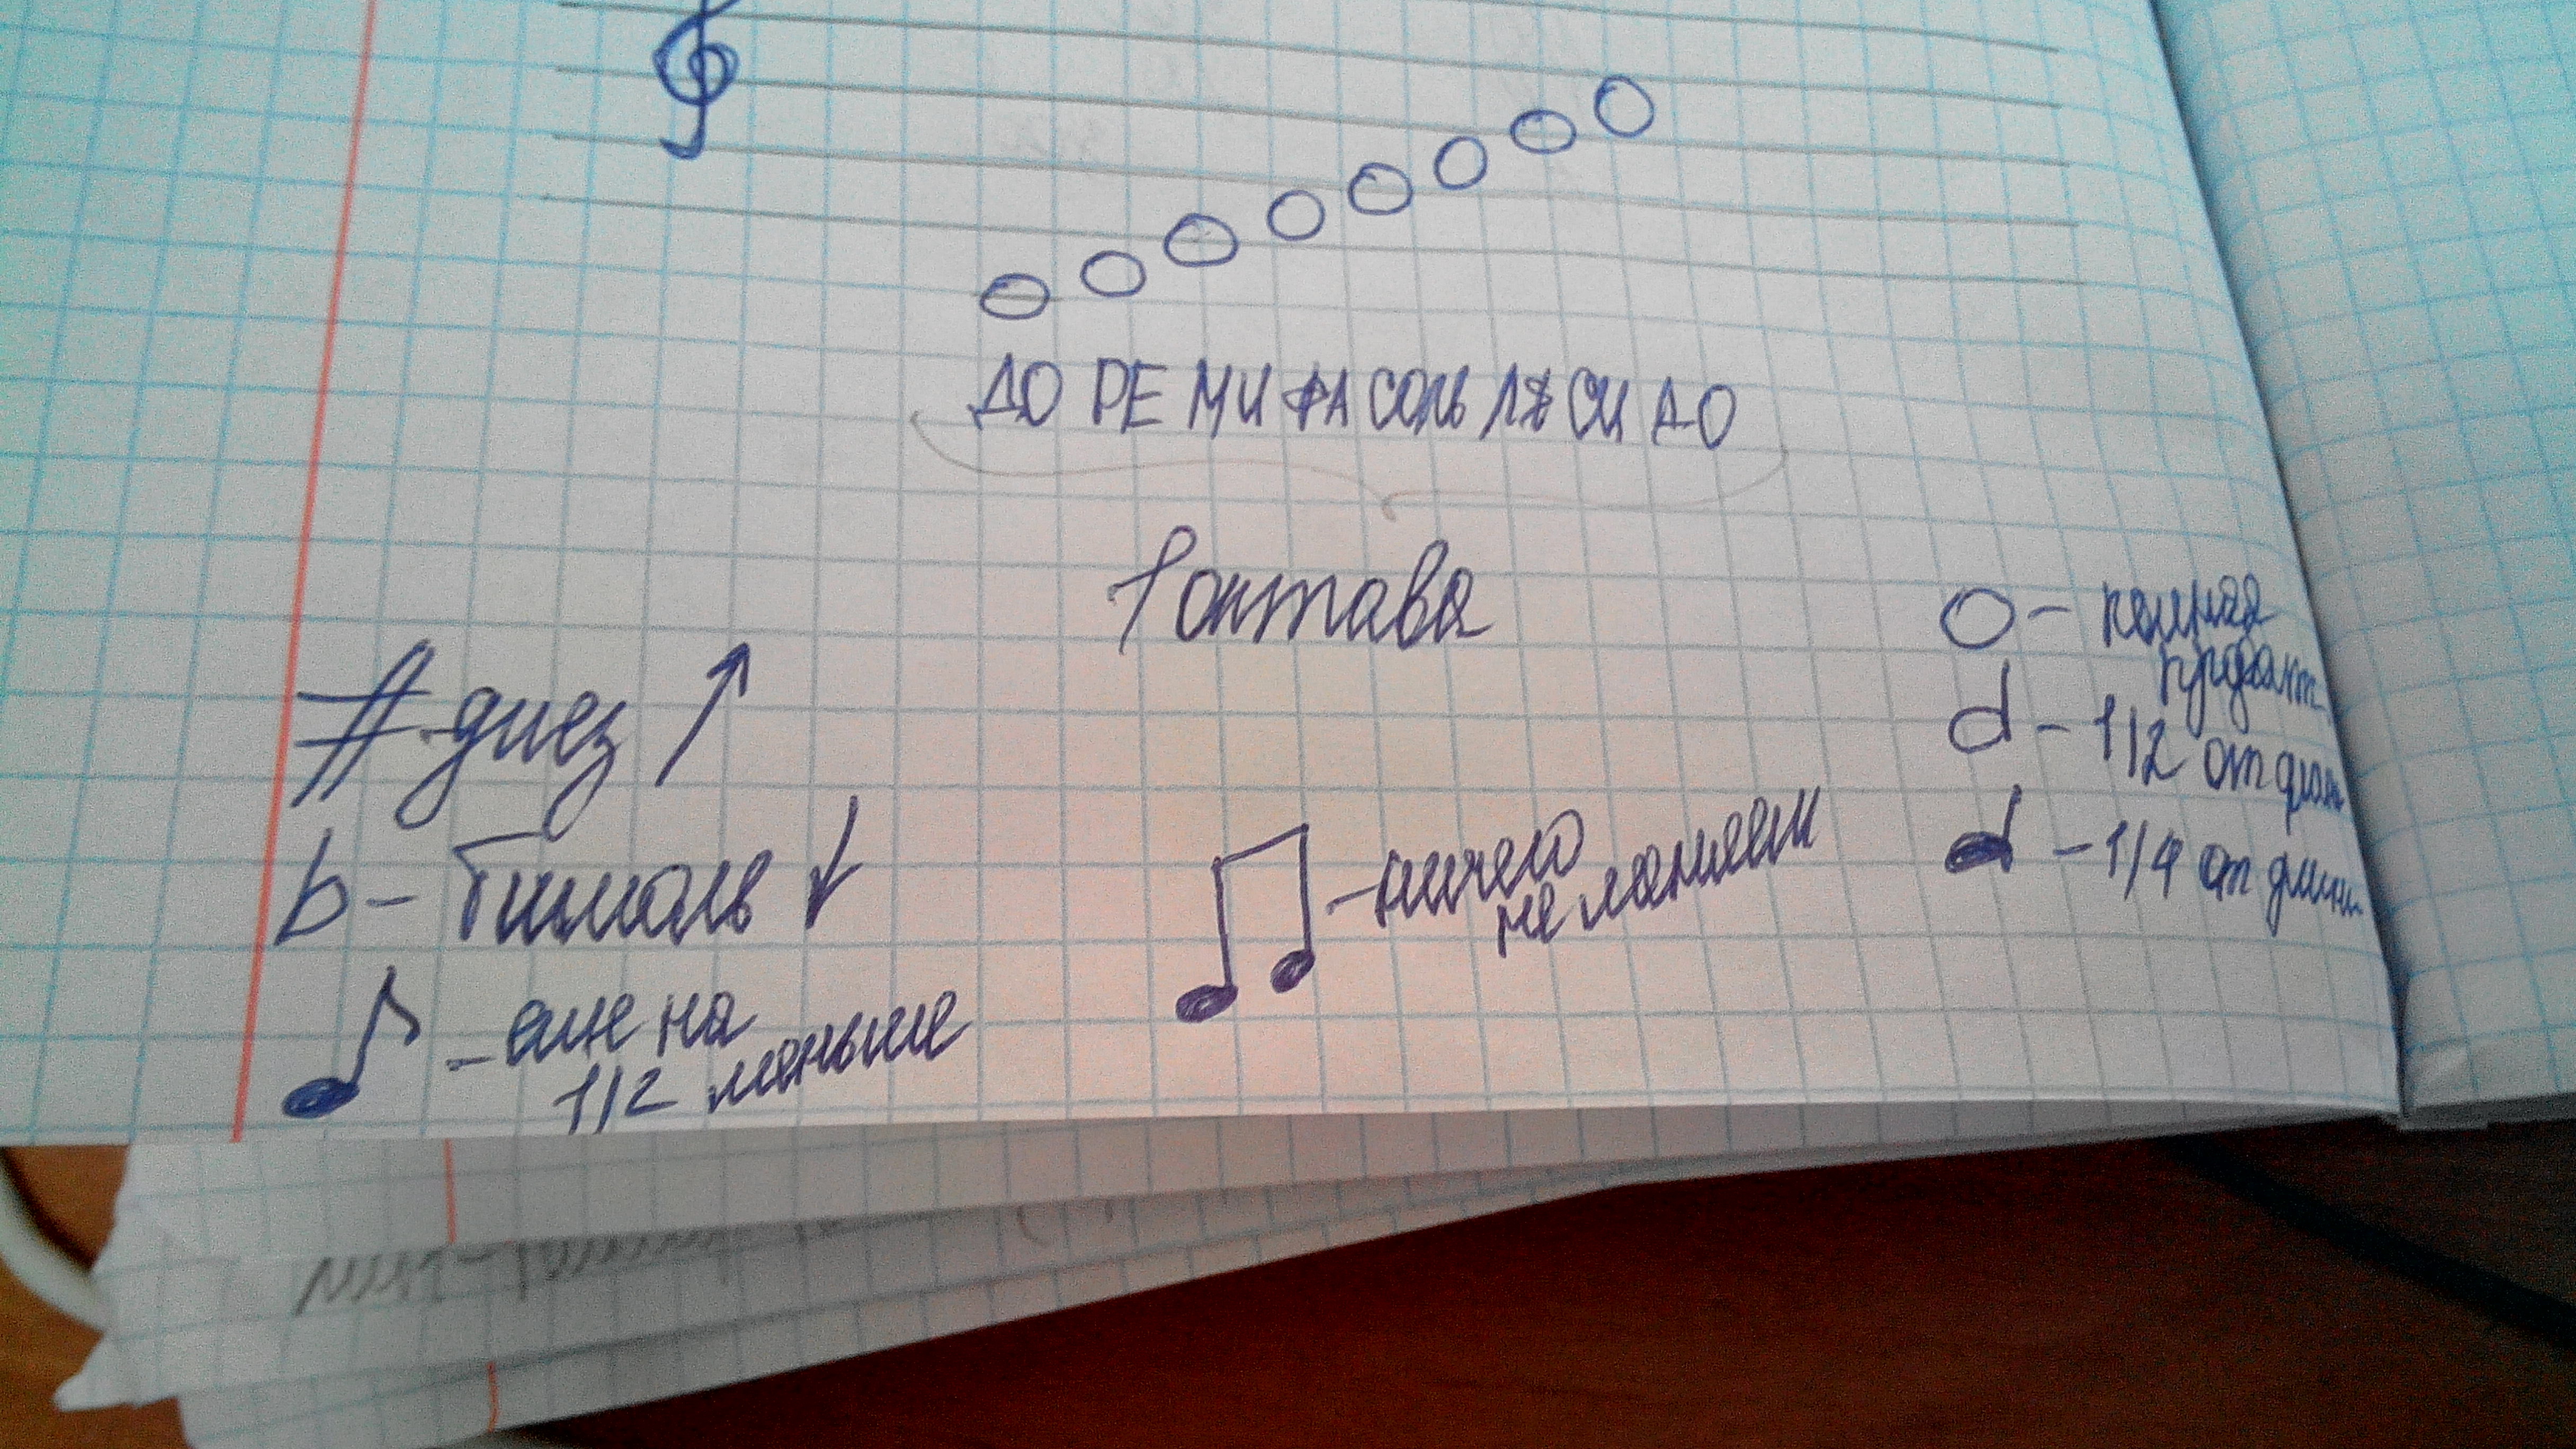 ДО РЕ МИ ФА СОЛЬ ЛЯ СИ ДО
1 октава
# - диез ↑
b - бимоль ↓
- еще на
1/2 меньше
- ничего
не меняем
- полная
- 1/2 от длин
- 1/4 от длины